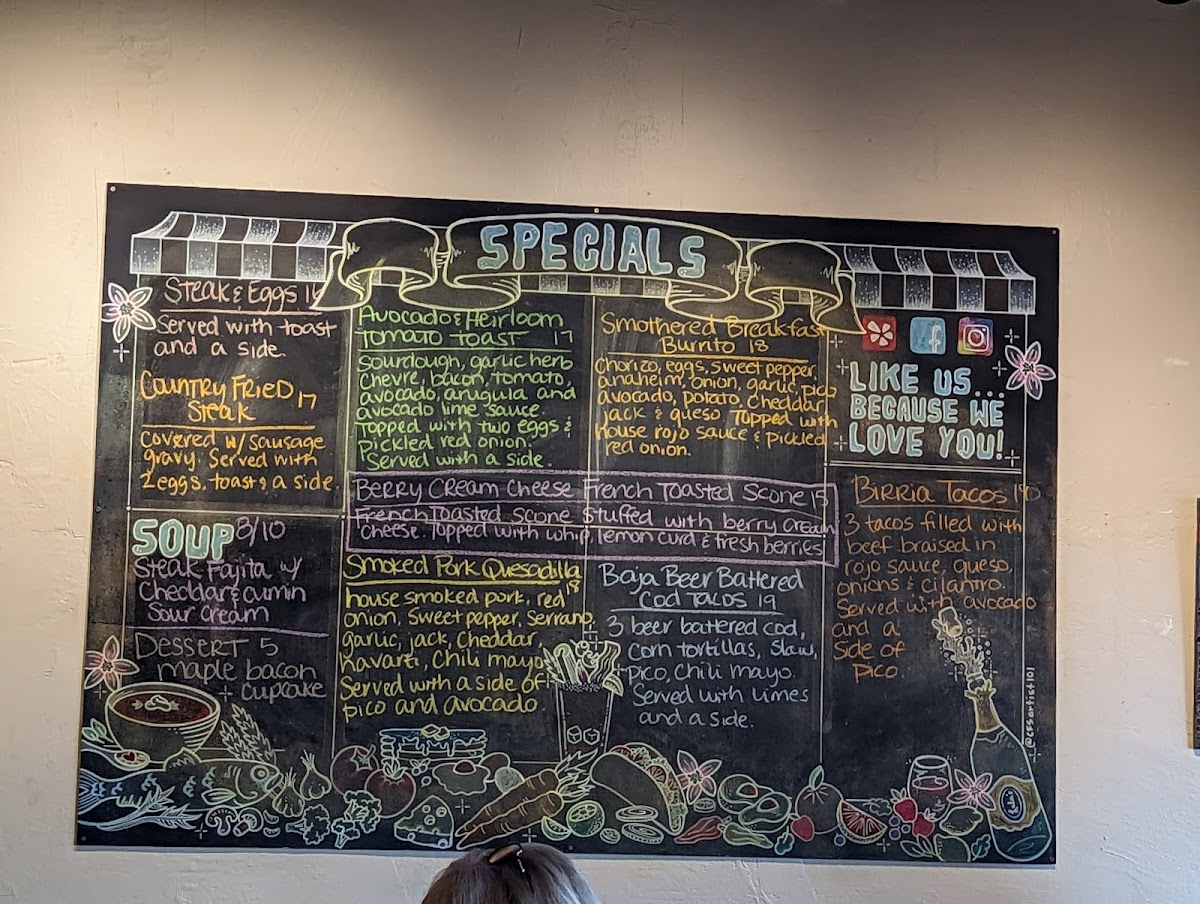 SPECIALS
Steak & Eggs
Served with toast
and a side.
Country Fried 17
Steak
covered w/ sausage
gravy. Served with
2 eggs, toast & a side
SOUP 8/10
Steak Fajita w/
Cheddar & cumin
Sour cream
Dessert 5
maple bacon
cupcake
Avocado & Heirloom
Tomato Toast 17
Sourdough, garlic herb
Chevre, bacon, tomato,
avocado, arugula and
avocado lime sauce.
Topped with two eggs &
pickled red onion.
Served with a side.
Smothered Breakfast
Burrito 18
Chorizo, eggs, sweet pepper,
anaheim, onion, garlic, pico
avocado, potato, cheddar,
jack & queso. Topped with
house rojo sauce & pickled
red onion.
Berry Cream Cheese French Toasted Scone 15
French Toasted Scone Stuffed with berry cream
cheese. Topped with whip, lemon curd & fresh berries
Smoked Pork Quesadilla
18
house smoked pork, red
onion, sweet pepper, Serrano,
garlic, jack, cheddar,
havarti, Chili mayo
Served with a side of
pico and avocado
Baja Beer Battered
Cod Tacos 19
3 beer battered cod,
corn tortillas, Slaw,
pico, Chili mayo.
Served with limes
and a side.
LIKE US...
BECAUSE WE
LOVE YOU!
Birria Tacos
3 tacos filled with
beef braised in
rojo sauce, queso,
onions & cilantro.
Served with avocado
and a
side of
Pico.